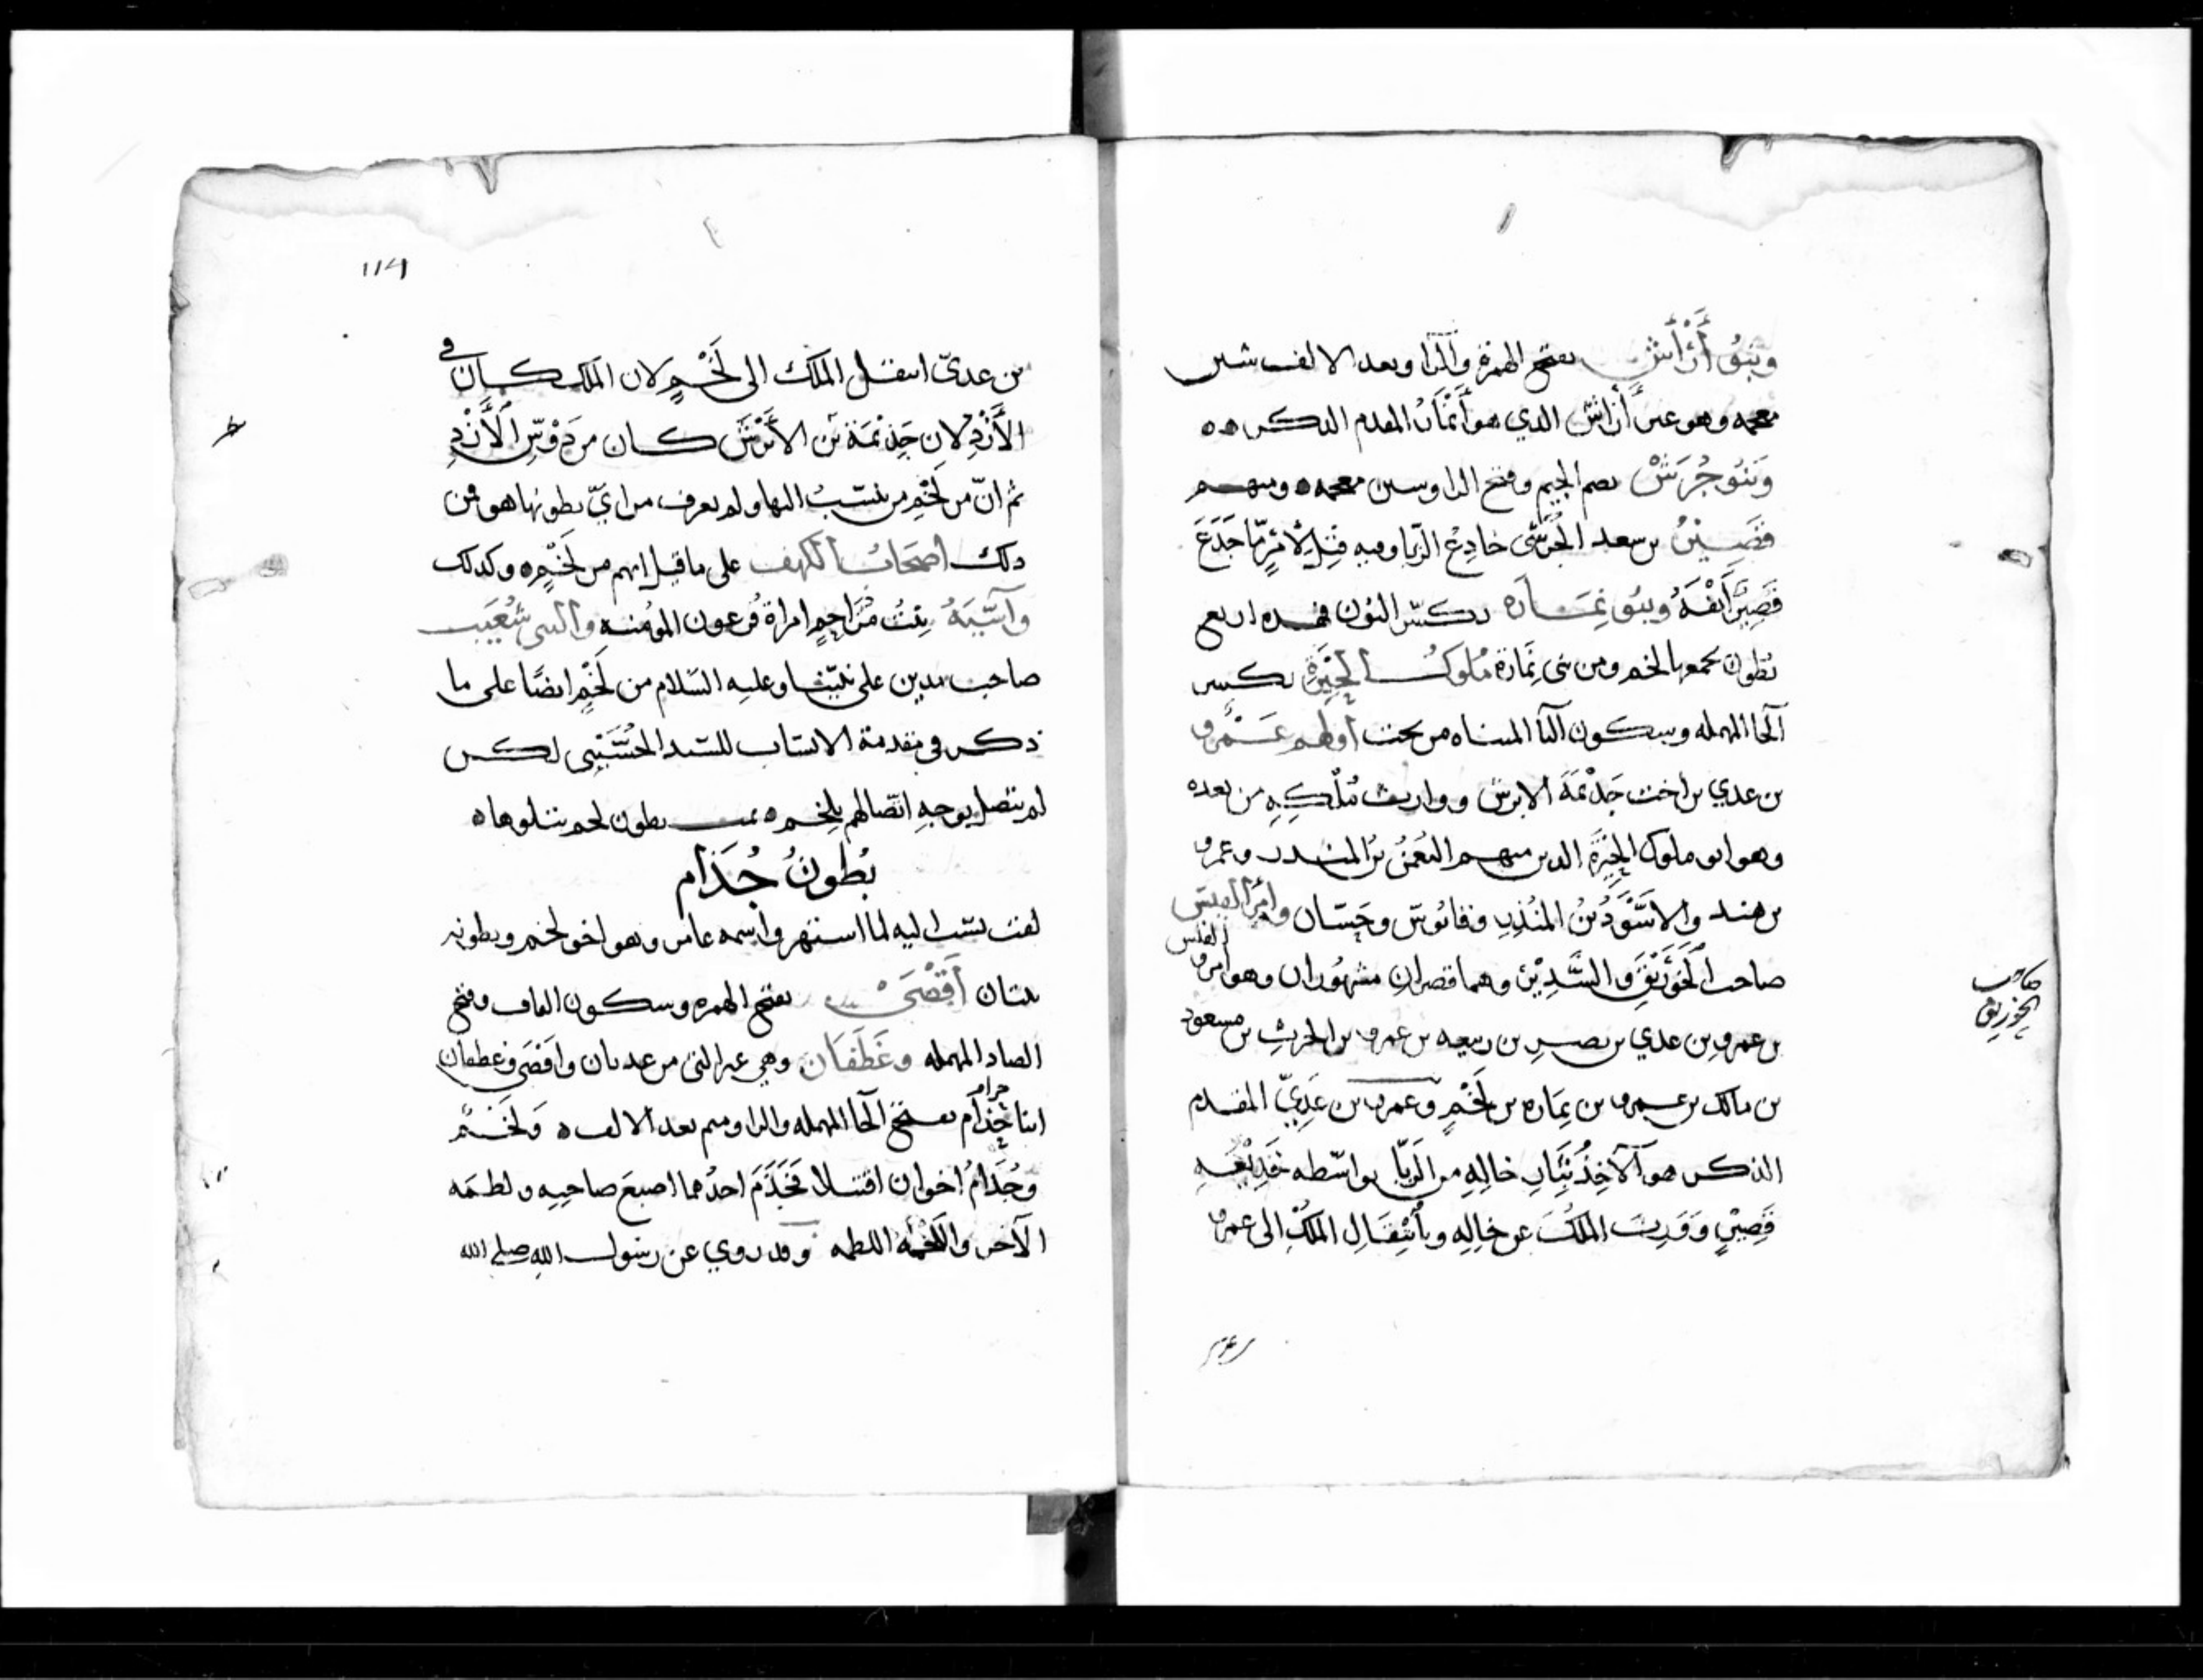 وبنو أراش بفتح الهمزة والرا وبعد الالف شين
معجمه وهو عير أراش الذي هو أنمار المقدم الذكر ه ه
وبنو جُرَش بضم الجيم وفتح الرا وسين معجمه ه ومنهم
قصير بن سعد الجرشي خادع الزبا وفيه قيل لأمرٍ مّا جَدَعَ
قصيرٌ أنفَهُ وبنو نِمَارَه بكسر النون فهده اربع
بطون يجمعها لخم ومن بني نمارة ملوك الحِيْرَةِ بكسر
الحا المهمله وسكون اليا المثناه من تحت أولهم عَمْرو
بن عدي بن اخت جَذيمَةَ الابرش ووارث مُلْكِهِ من بعده
وهو ابو ملوك الحِيْرَةِ الذين منهم النعمنُ بن المنذر وعمرو
بن هند والاسْوَدُ بْنُ المُنْذِرِ وقابوس وحسان وامرا القيس
صاحب الخَوَرْنَقِ والسَّدِيْرِ وهما قصران مشهوران وهو امرو القيس
بن عمرو بن عدي بن نصر بن ربيعه بن عمرو بن الحرث بن مسعود
بن مالك بن عمرو بن نِمَاره بن لَخْمٍ وعمرو بن عَدِيّ المقدم
الذكر هو الآخِذُ بثَارِ خالِهِ من الزبّا بواسطه خَدِيْعَةِ
قَصِيْرٍ وَوَرِثَ المُلْكَ عن خالِهِ وبانْتِقَالِ المُلْكِ الى عمرو
صاحب
الخورنق
114
بن عديّ انتقل الملك الى لَخْمٍ لان الملك كان في
الأَزْدِ لان جَذِيْمَةَ بن الأبْرَشِ كان من دَوْسِ الأَزْدِ
ثم انّ من لَخْمٍ من ينتسبُ اليها ولم يعرف من ايّ بطونها هو فمن
ذلك اصحابُ الكهف على ما قيل انهم من لَخْمٍ ه وكذلك
وآسِيَهُ بنتُ مُزَاحِمٍ امراة فرعون المؤمنه والنبي شُعَيب
صاحب مدين على نبيّنا وعليه السلام من لَخْمٍ ايضًا على ما
ذكر في مقدمة الانساب للسيد الحُسَيْنِي لكن
لم يتصل بوجهِ اتصالهم بلخم ه تمت بطون لخم يتلوها ه
بُطونُ جُذَام
لقب نسب اليه لما اشتهر واسمه عامر وهو اخو لخم وبطونه
بطنان أَقْصَى بفتح الهمزه وسكون القاف وفتح
الصاد المهمله وغَطَفَان وهي غير التي من عدنان واقصى وغطفان
ابنا حرام بفتح الحا المهمله والرا وميم بعد الالف ه ولَخْم
وجُذامُ اخوان اقتتلا فَجَذَمَ احدُهما اصبعَ صاحبِه ولطمَه
الآخر واللَّخْمَهُ اللطمه وقد روي عن رسول الله صلى الله